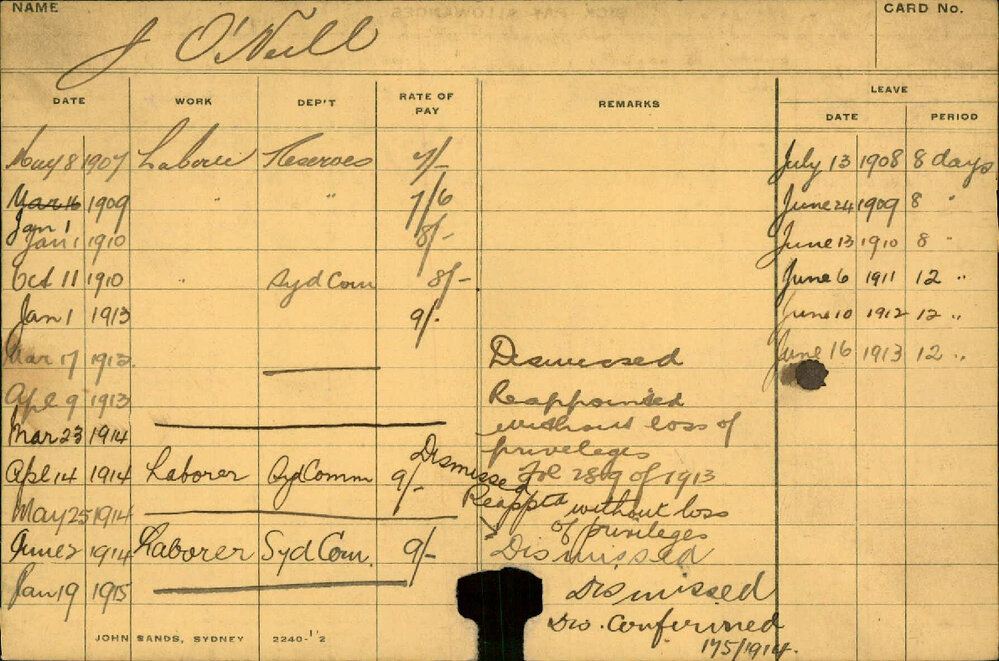 NAME CARD No.
J O'Neill
DATE WORK DEP'T RATE OF PAY REMARKS LEAVE
DATE PERIOD
May 8 1907 Laborer Reserves 7/- July 13 1908 8 days
Mar 16 1909 " " 7/6 June 24 1909 8 "
Jan 1
Jan 1 1910 8/- June 13 1910 8 "
Oct 11 1910 " Syd Com 8/- June 6 1911 12 "
Jan 1 1913 9/- June 10 1912 12 "
Mar 17 1913 Dismissed June 16 1913 12 "
Apl 9 1913 Reappointed
without loss of
Mar 23 1914 privileges
Dismissed
Apl 14 1914 Laborer Syd Comm 9/- Fol 2819 of 1913
Reapptd without loss
May 25 1914 of privileges
June 2 1914 Laborer Syd Com. 9/- Dismissed
Jan 19 1915 Dismissed
Dis. Confirmed
175/1914.
JOHN SANDS, SYDNEY 2240-1'2